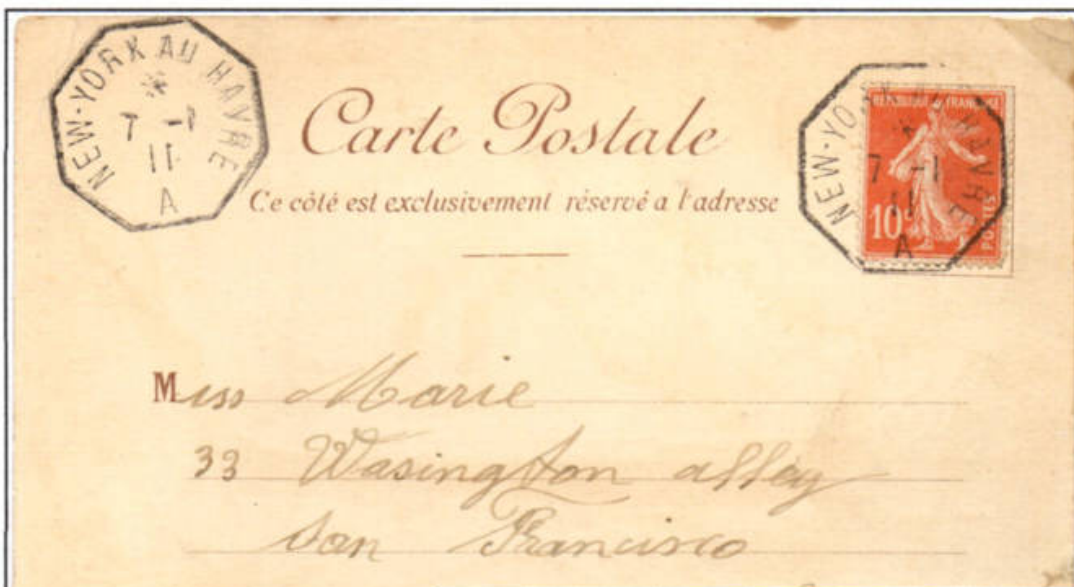 NEW-YORK AU HAVRE
*
7 -1
11
A
Carte Postale
Ce côté est exclusivement réservé a l'adresse
NEW-YORK AU HAVRE
*
7 -1
11
A
REPUBLIQUE FRANÇAISE
10c
POSTES
Miss Marie
33 Wasington alley
San Francisco